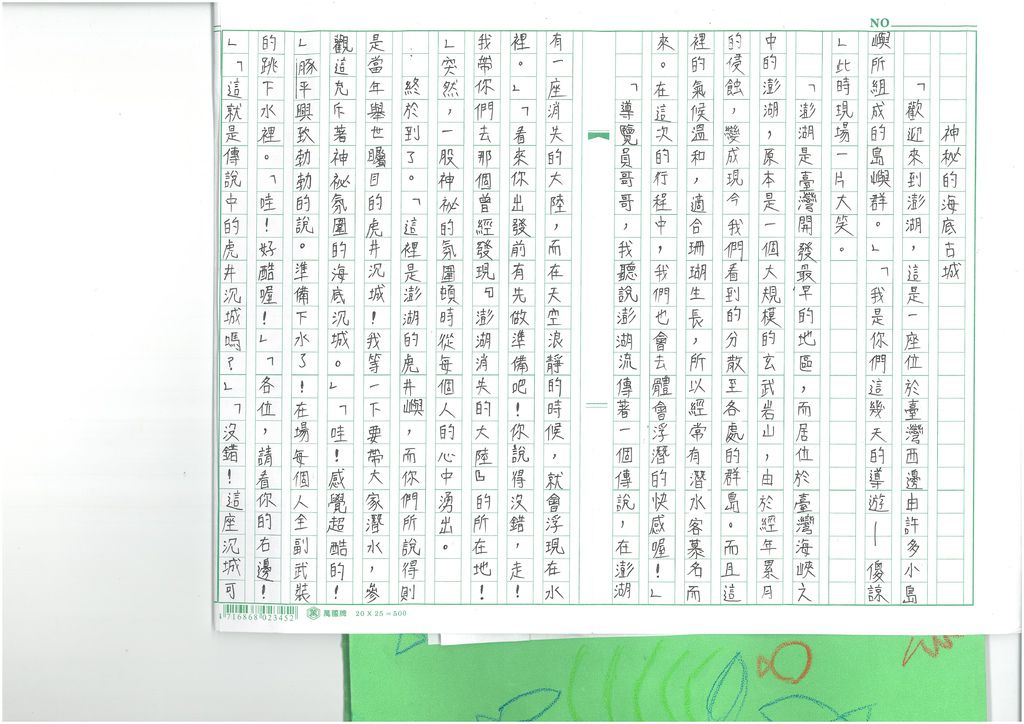 NO
神秘的海底古城
「歡迎來到澎湖，這是一座位於臺灣西邊由許多小島
嶼所組成的島嶼群。」「我是你們這幾天的導遊—傻諒
」此時現場一片大笑。
「澎湖是臺灣開發最早的地區，而居位於臺灣海峽之
中的澎湖，原本是一個大規模的玄武岩山，由於經年累月
的侵蝕，變成現今我們看到的分散至各處的群島。而且這
裡的氣候溫和，適合珊瑚生長，所以經常有潛水客慕名而
來。在這次的行程中，我們也會去體會浮潛的快感喔！」
「導覽員哥哥，我聽說澎湖流傳著一個傳說，在澎湖
有一座消失的大陸，而在天空浪靜的時候，就會浮現在水
裡。」「看來你出發前有先做準備吧！你說得沒錯，走！
我帶你們去那個曾經發現『澎湖消失的大陸』的所在地！
」突然，一股神祕的氛圍頓時從每個人的心中湧出。
終於到了。「這裡是澎湖的虎井嶼，而你們所說得則
是當年舉世矚目的虎井沉城！我等一下要帶大家潛水，參
觀這充斥著神祕氛圍的海底沉城。」「哇！感覺超酷的！
」豚平興致勃勃的說。準備下水了！在場每個人全副武裝
的跳下水裡。「哇！好酷喔！」「各位，請看你的右邊！
」「這就是傳說中的虎井沉城嗎？」「沒錯！這座沉城可
1716868023452
萬國牌 20 X 25 = 500